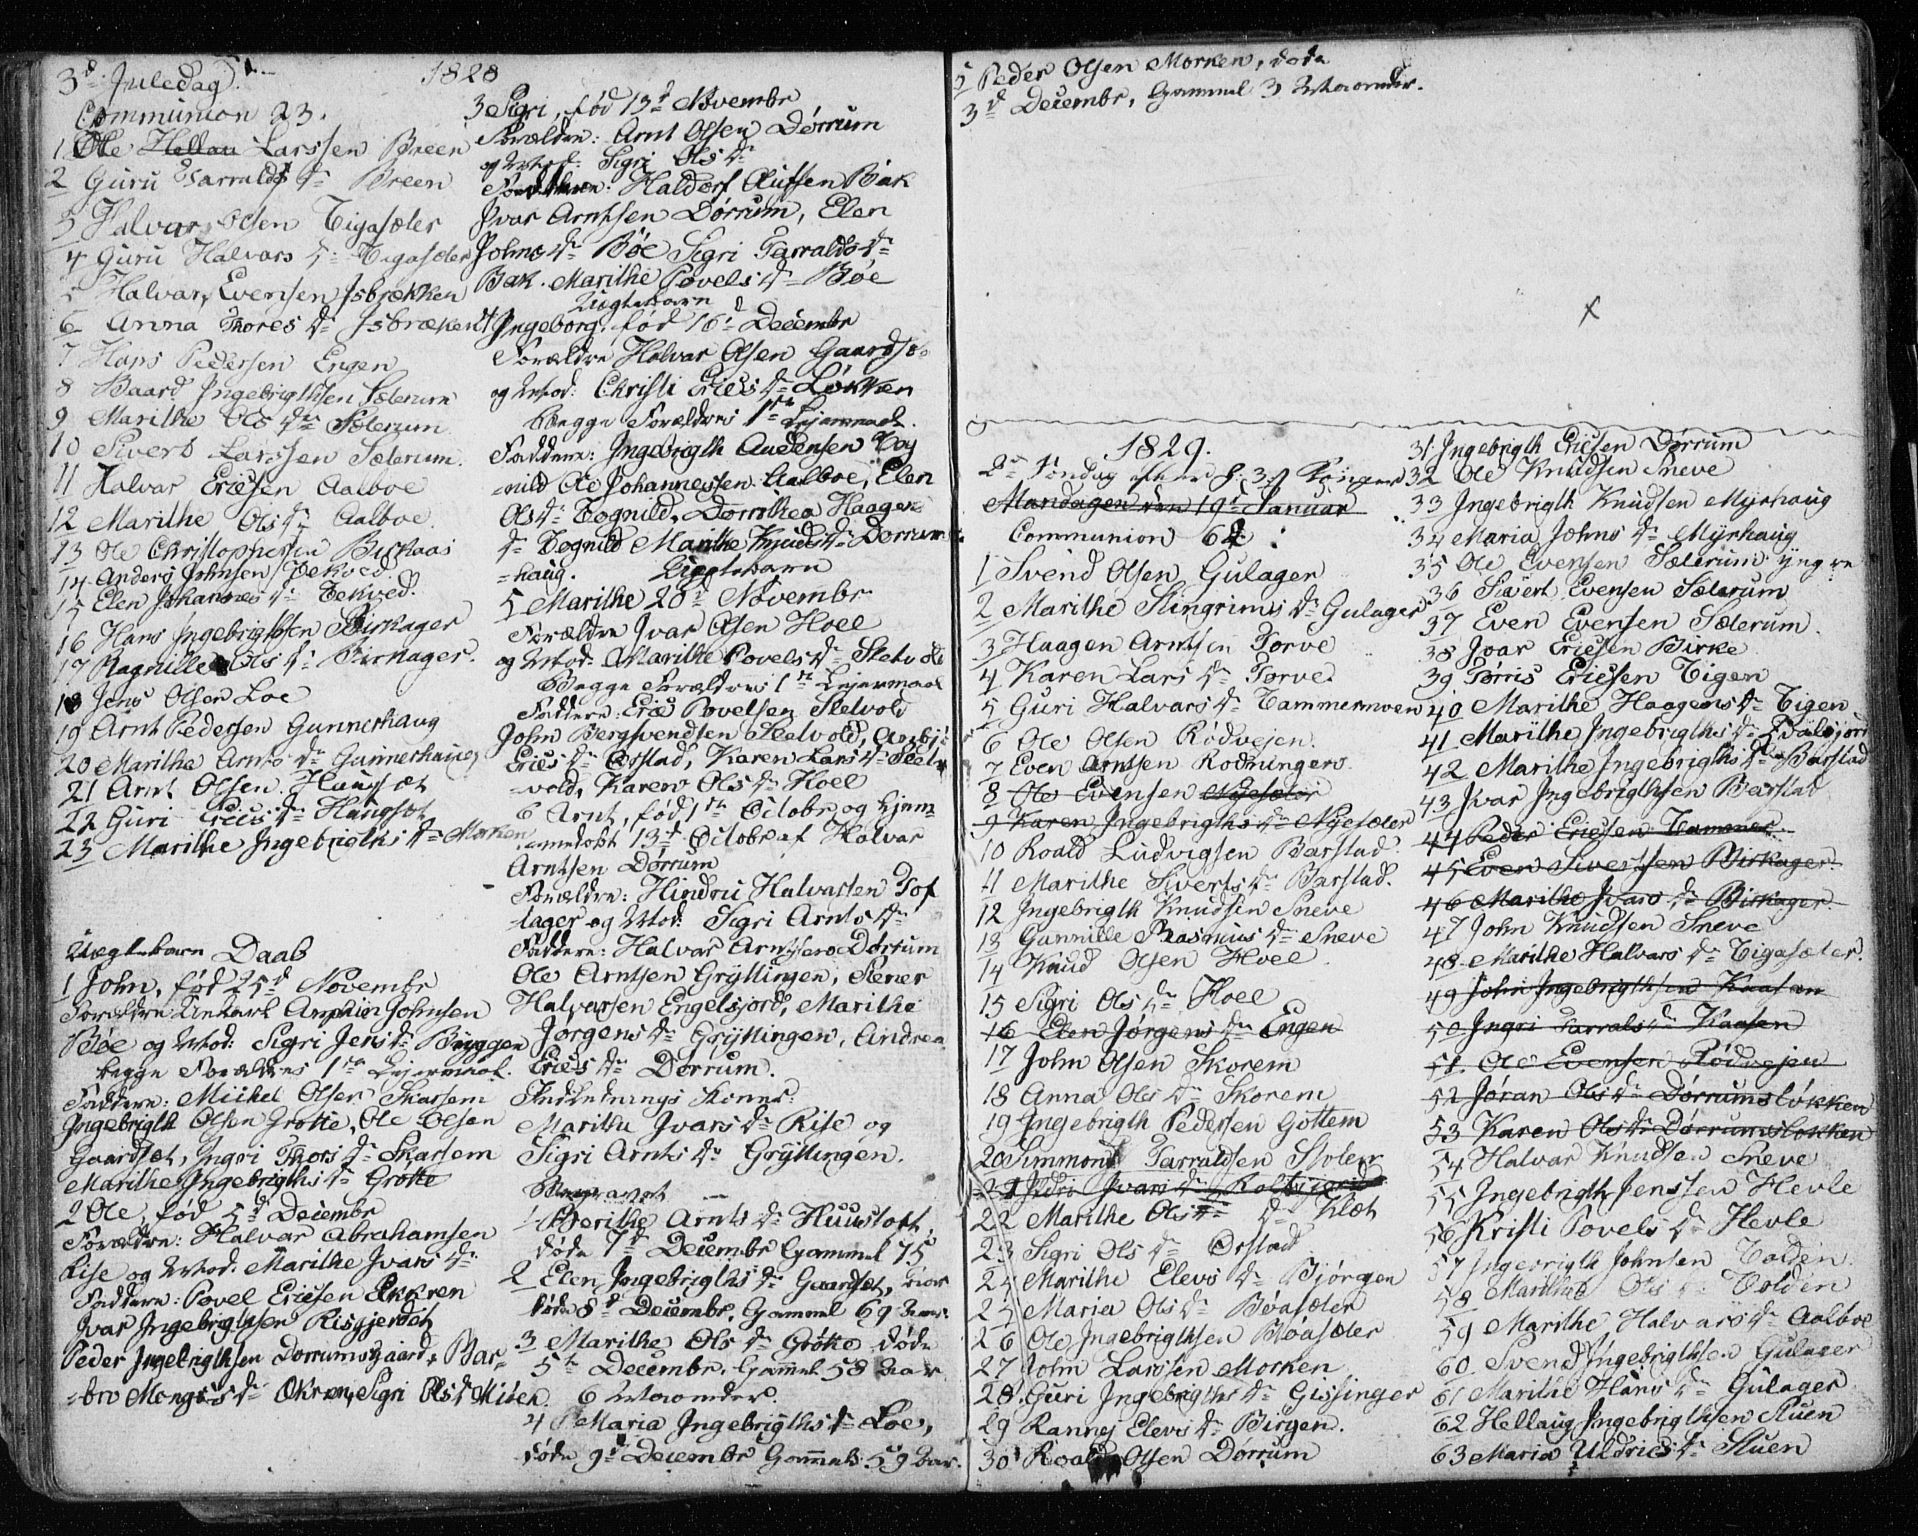 3d Juledag.
1828
Communion 23.
1 Ole Hellau Larssen Breen
2 Guru Tarralds Dr Breen
3 Halvar Olsen Tigasæter
4 Guru Halvars Dr Tigasæter
5 Halvar Evensen Isbrækken
6 Anna Thores Dr Isbræken
7 Hans Pedersen Engen
8 Baard Ingebrigthsen Sæterum
9 Marithe Ols Dr Sæterum
10 Sivert Larssen Sæterum.
11 Halvar Ericsen Aalboe
12 Marithe Ols Dr Aalboe
13 Ole Christophersen Birkaas
14 Anders Johnsen
15 Elen Johannes Dr
16 Hans Ingebrigthsen Birkager
17 Ragnille Ols Dr Birkager.
18 Jens Olsen Loe
19 Arnt Pedersen Gunnerhaug
20 Marithe Arnts Dr Gunnerhaug
21 Arnt Olsen Haugset
22 Guri Erics Dr Haugset
23 Marithe Ingebrigths Dr Morken
Uægtebarn Daab
1 John, fød 25d Novembr
Forældre Enkarl Johnsen
Bøe og Mod: Sigri Jens Dr Byggen
begge Forældres 1ste Lejermaal.
Faddere: Mickel Olsen Skarsem
Ingebrigth Olsen Grøtte, Ole Olsen
Gaardset, Ingri Thors Dr Skarsem
Marithe Ingebrigths Dr Grøtte
2 Ole, fød 5d Decembr
Forældre: Halvar Abrahamsen
Rise og Mod: Marithe Ivars Dr
Faddere: Povel Ericsen Ekkren
Ivar Ingebrigthsen Risgjerdet
Peder Ingebrigthsen Dorrumsgaard, Bar-
-bro Monges Dr Økren, Sigri Ols Dr
3 Sigri, fød 13d Novembr
Forældre: Arnt Olsen Dørrum
og Mod: Sigri Ols Dr
Faddere: Haldor Bak
Ivar Arntsen Dørrum, Elen
Johns Dr Bøe Sigri Tarralds Dr
Bak. Marithe Povels Dr Bøe
Uægtebarn
4 Ingeborg, fød 16d Decembr
Forældre Halvar Olsen Gaardse-
og Mod: Christi Erics Dr Løkken
begge Forældres 1ste Lejermaal.
Faddere: Ingebrigth Audensen Tog
-nild Ole Johannessen Aalboe, Elen
Ols Dr Tognild, Dorrothea Haagen
Dr Tognild Marithe Knuds Dr Dorrum
=haug. Uægtebarn
5 Marithe 20d Novembr
Forældre Ivar Olsen Hoel
og Mod: Marithe Povels Dr Sletvold
Begge Forældres 1ste Lejermaal
Faddere: Eric Povelsen Sletvold
John Bergsvendsen Sletvold,
Erics Dr Ørstad, Karen Lars Dr Sletv
-vold, Karen Ols Dr Hoel
6 Arnt, fød 1ste Octobr og hjem-
-medøbt 13d Octobr af Halvar
Arntsen Dørrum
Forældre: Hindric Halvarsen Tof
tager og Mod: Sigri Arnts Dr
Faddere: Halvar Arntsen Dørrum
Ole Arntsen Gryttingen, Stener
Halvarsen Engelsjord, Marithe
Jørgens Dr Gryttingen, Andrea
Erics Dr Dørrum.
Indledenings Koner:
Marithe Ivars Dr Rise og
Sigri Arnts Dr Gryttingen.
Begravet
1 Berithe Arnts Dr Huustoft,
døde 7d Decembr Gammel 75
2 Elen Ingebrigths Dr Gaardset,
døde 8d Decembr, Gammel 69 Aar
3 Marithe Ols Dr Grøtte døde
5te Decembr. Gammel 58 Aar
6 Maaneder.
4 Maria Ingebrigths Dr Loe,
døde 9d Decembr Gammel: 59 Aar.
5 Peder Olsen Morken, døde
3d Decembr, Gammel 3 Maaneder.
1829.
2den Søndag efter H. 3 Konger
Mandagen den 19d Januar
Communion 62
1 Svend Olsen Gulager
2 Marithe Stingrims Dr Gulager
3 Haagen Arntsen Torve
4 Karen Lars Dr Torve.
5 Guri Halvars Dr Tammermoen
6 Ole Olsen Rødvejen.
7 Even Arntsen Rodningero
8 Ole Evensen Nyesæter
9 Karen Ingebrigths Dr Nyesæter
10 Roald Ludvigsen Barstad
11 Marithe Siverts Dr Barstad.
12 Ingebrigth Knudsen Sneve
13 Gunnille Rasmus Dr Sneve
14 Knud Olsen Hoel
15 Sigri Ols Dr Hoel
16 Elen Jørgens Dr Engen
17 John Olsen Skorem
18 Anna Ols Dr Skorem
19 Ingebrigth Pedersen Gottem
20 Simmon Tarraldsen Stølen
21 Sidri Ivars Dr
22 Marithe Ols Dr Klæt
23 Sigri Ols Dr Ørstad
24 Marithe Elevs Dr Bjørgen
25 Maria Ols Dr Bøasæter
26 Ole Ingebrigthsen Bøasæter
27 John Larssen Morken
28 Guri Ingebrigths Dr Gissinger
29 Rannej Elevs Dr Birgen.
30 Roald Olsen Dorrum
31 Ingebrigth Ericsen Dørrum
32 Ole Knudsen Sneve
33 Ingebrigth Knudsen Myrhaug
34 Maria Johns Dr Myrhaug
35 Ole Evensen Sæterum yngre
36 Sivert Evensen Sæterum
37 Even Evensen Sæterum.
38 Ivar Ericsen Birke
39 Tørris Ericsen Tigen
40 Marithe Haagens Dr Tigen
41 Marithe Ingebrigths Dr
42 Marithe Ingebrigths Dr Barstad
43 Ivar Ingebrigthsen Barstad
44 Peder Ericsen Tammer.
45 Even Sivertsen Birkager
46 Marithe Ivars Dr Birkager.
47 John Knudsen Sneve
48 Marithe Halvars Dr Tigasæter.
49 John Ingebrigthsen Kaasen
50 Ingri Tarrals Dr Kaasen
51 Ole Evensen Rødvejen
52 Jøran Ols Dr Dørrumsløkken
53 Karen Ols Dr Dørrumsløkken
54 Halvar Knudsen Sneve
55 Ingebrigth Jenssen Hevle
56 Kristi Povels Dr Hevle
57 Ingebrigth Johnsen Volden
58 Marithe Ols Dr Volden
59 Marithe Halvars Dr Aalboe
60 Svend Ingebrigthsen Gulager
61 Marithe Hans Dr Gulager
62 Hellaug Ingebrigthsen Stuen
63 Maria Uldrics Dr Stuen